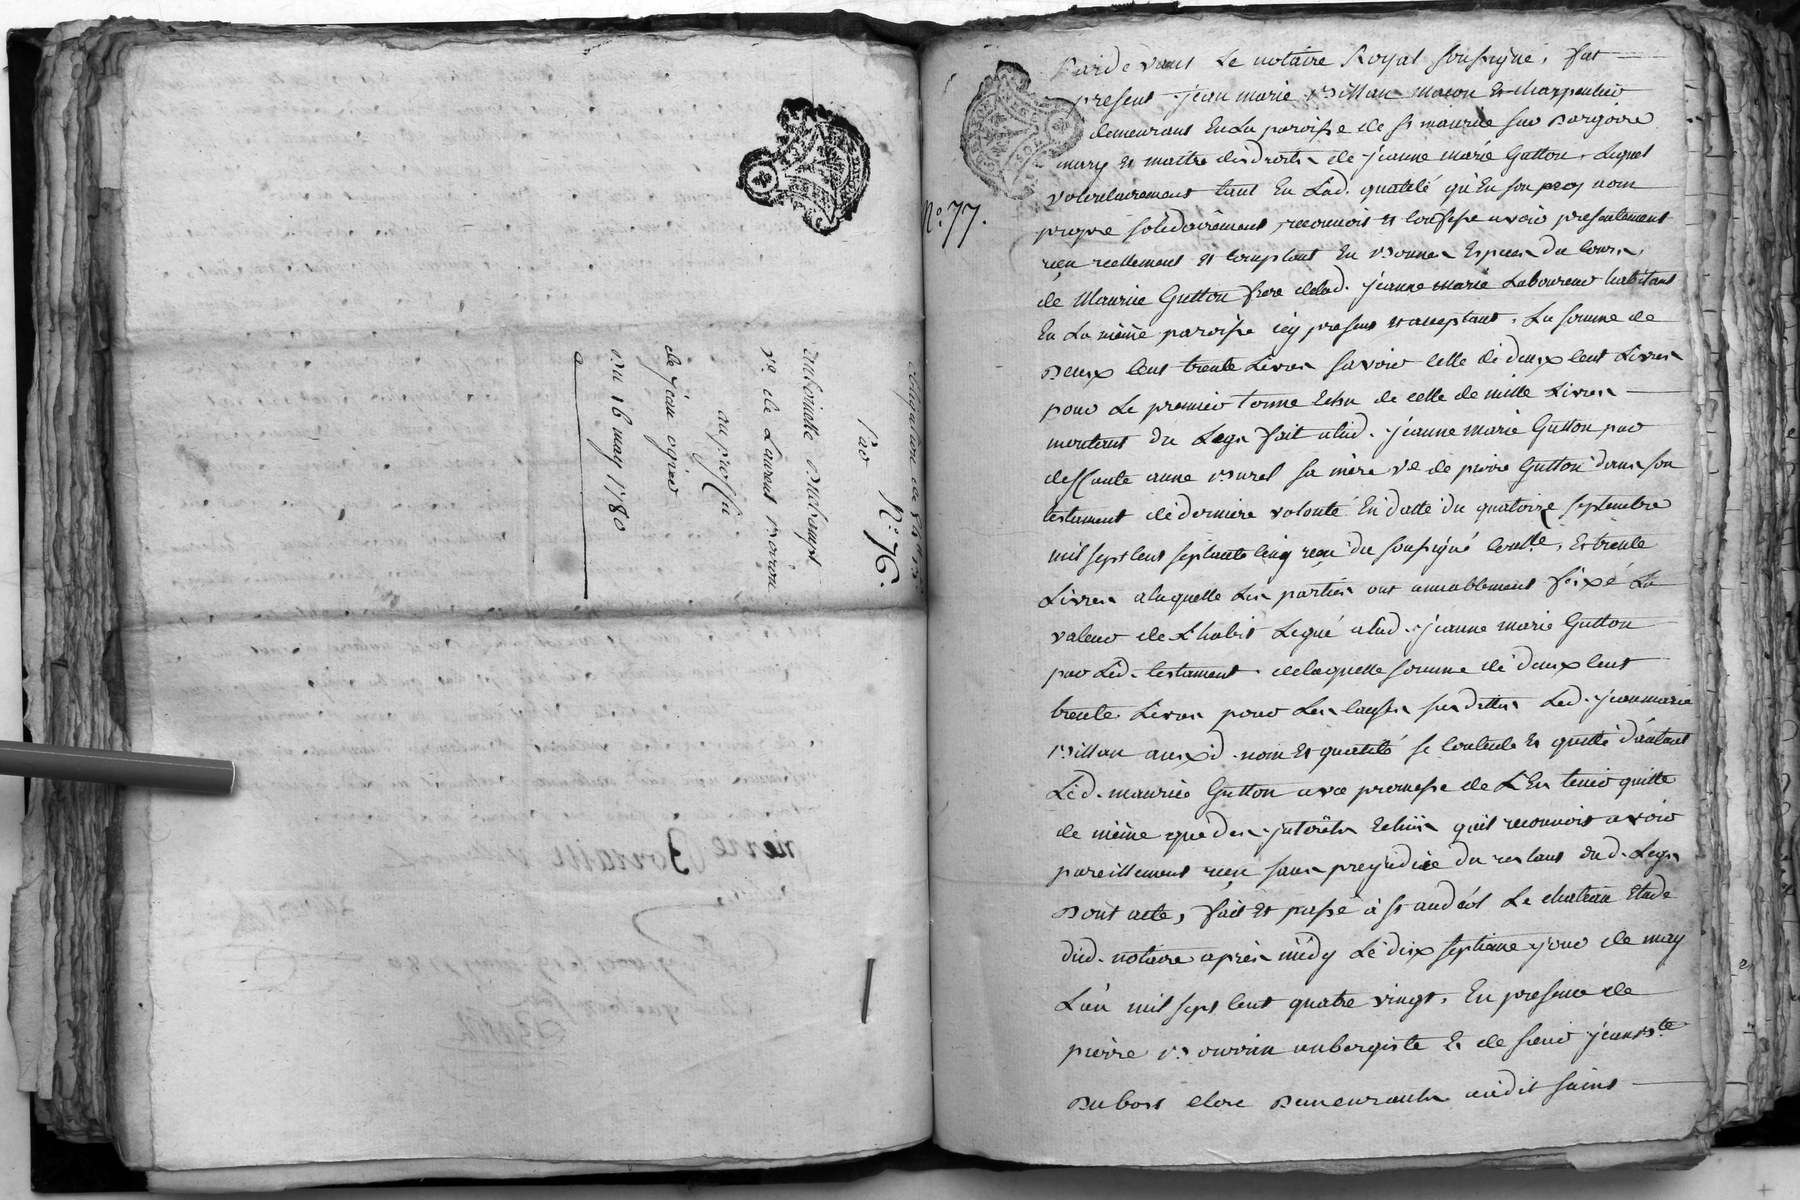 N.° 76.
Par
anthoinette Duchampt
v.e de Laurent Boiron
au proffit
de jean ogier
Du 16 may 1780
N.° 77.
Pardevant Le notaire Royal soussigné, fut
present jean marie Billan macon et charpentier
demeurant En La paroisse de st maurice sur Dargoire
mary et maitre des droits de jeanne marie Gutton, Lequel
volontairement tant En Lad. qualité qu'En son nom
propre solidairement, reconnoit et confesse avoir presentement
reçu reellement et comptant En Bonnes Especes du Cours,
de Maurice Gutton frere delad. jeanne marie Laboureur habitant
En La même paroisse icy present et acceptant, La somme de
Deux Cent trente Livres savoir Celle de deux Cent Livres
pour Le premier terme Echu de celle de mille Livres
montant du Legs fait alad. jeanne marie Gutton par
deffunte anne Burel sa mère v.e de pierre Gutton dans son
testament de derniere volonté En datte du quatorze septembre
mil sept Cent septante Cinq reçu du soussigné Cont.lé, Et trente
Livres alaquelle Les parties ont amiablement fixé La
valeur de L'habit Legué alad. jeanne marie Gutton
par Led. testament. delaquelle somme de deux Cent
trente Livres pour Les Causes susdittes Led. jean marie
Billan auxd. nom et qualité se Contente et quitte d'autant
Led. maurice Gutton avec promesse de L'En tenir quitte
de même que des jnterêts Echus qu'il reconnoit avoir
pareillement reçu sans prejudice du restant dud. Legs
Dont acte, fait et passé à st andéol Le chateau Etude
dud. notaire après midy Le dix septieme jour de may
L'an mil sept Cent quatre vingt, En presence de
pierre Bourrin aubergiste Et de sieur jean B.te
Dubost clerc Demeurants audit saint